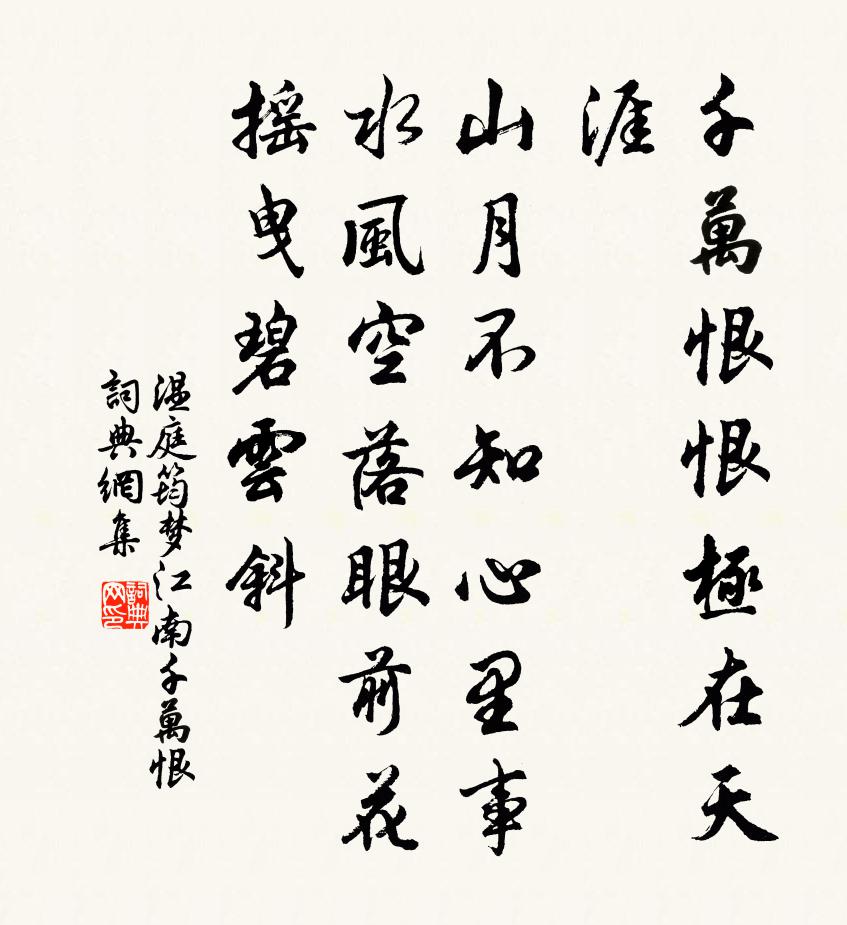 千萬恨恨極在天
涯
山月不知心里事
水風空落眼前花
摇曳碧雲斜
温庭筠梦江南千萬恨
詞典網集
詞典网印